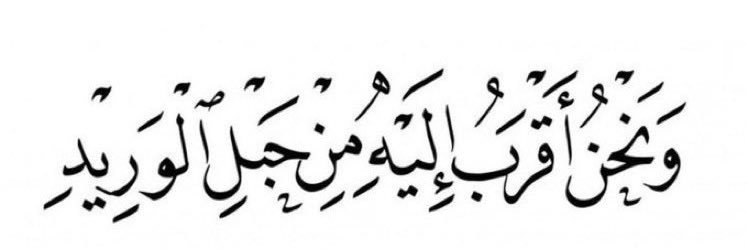 وَنَحْنُ أَقْرَبُ إِلَيْهِ مِنْ حَبْلِ ٱلْوَرِيدِ